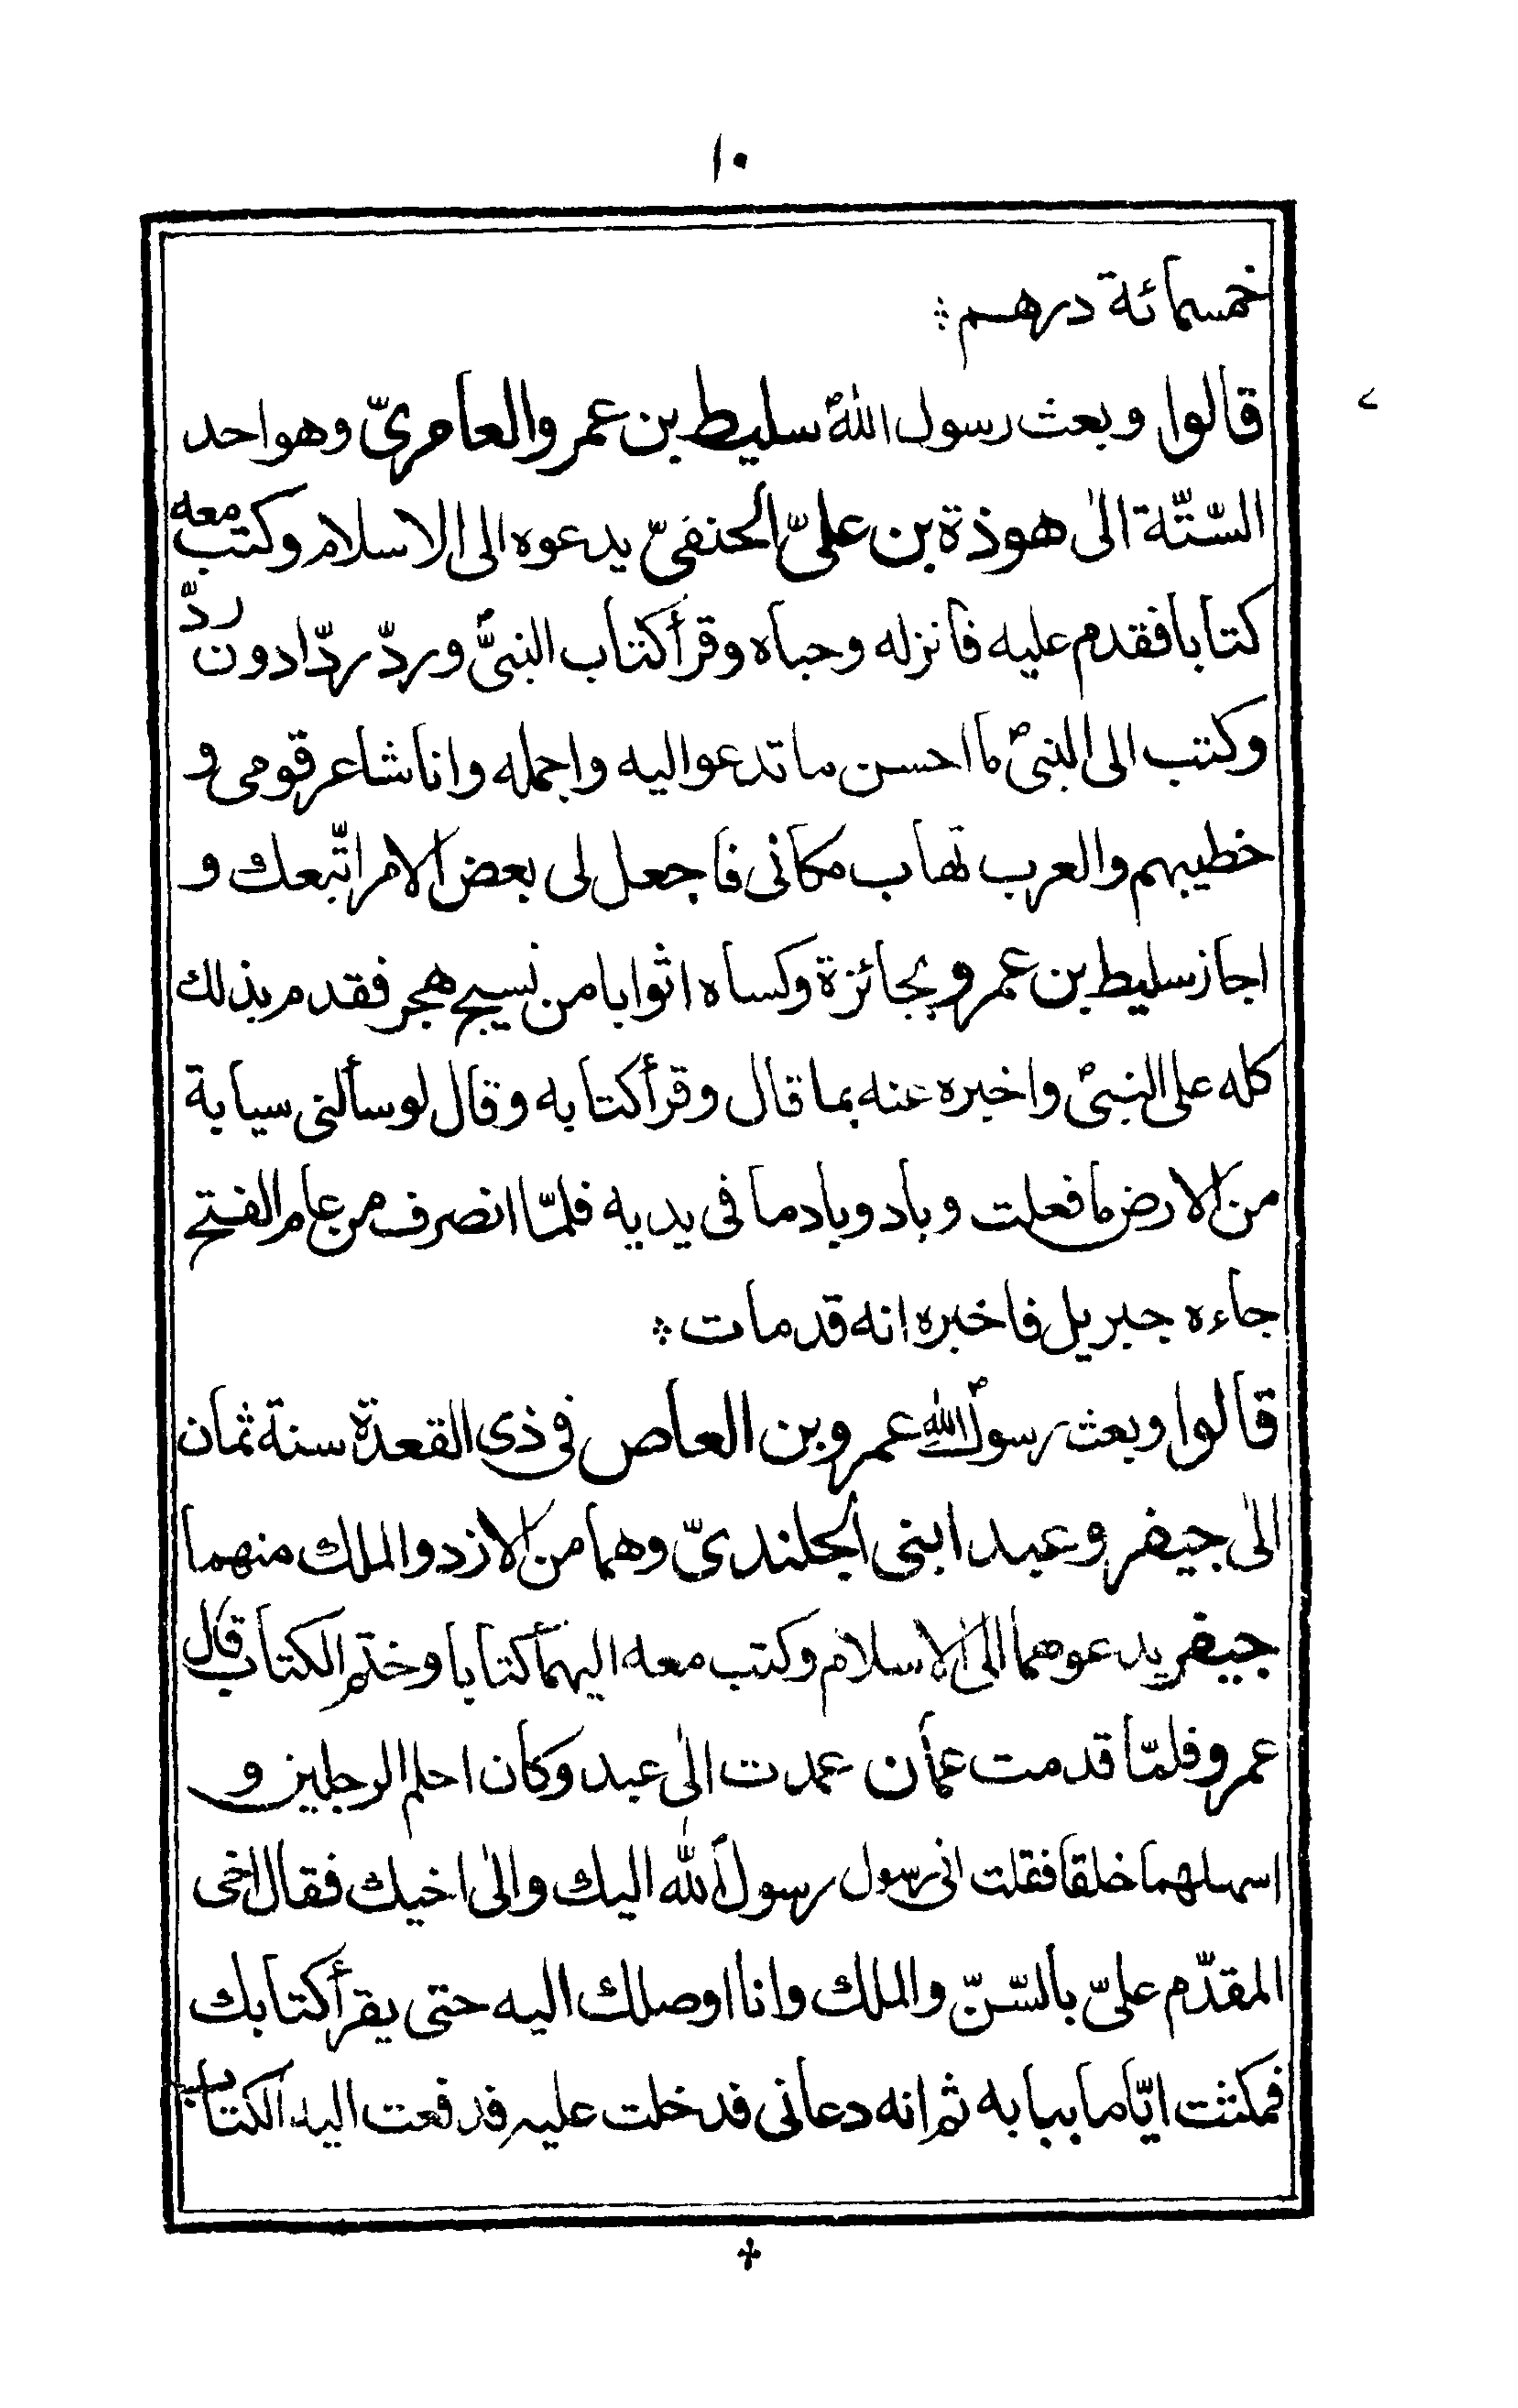 ١٠
خمسمائة درهم ⁘
قالوا وبعث رسول اللهؐ سليط بن عمرو العامريّ وهو احد
٧
السّتّة الى هوذة بن علىّ الحنفىّ يدعوه الى الاسلام وكتب معه
كتابا فقدم عليه فانزله وحباه وقرأ كتاب النبىّؐ وردّ ردّا دون ردّ
وكتب الى النبىؐ ما احسن ما تدعو اليه واجمله وانا شاعر قومى و
خطيبهم والعرب تهاب مكانى فاجعل لى بعض الامر اتّبعك و
اجاز سليط بن عمرو بجائزة وكساه اثوابا من نسيج هجر فقدم بذلك
كله على النبىؐ واخبره عنه بما قال وقرأ كتابه وقال لو سألنى سيابة
من الارض ما فعلت وباد وباد ما فى يديه فلمّا انصرف من عام الفتح
جاءه جبريل فاخبره انه قد مات ⁘
قالوا وبعث رسول اللهؐ عمرو بن العاص فى ذى القعدة سنة ثمان
الى جيفر وعبد ابنى الجلندىّ وهما من الازد والملك منهما
جيفر يدعوهما الى الاسلام وكتب معه اليهما كتابا وختم الكتاب قال
عمرو فلمّا قدمت عمان عمدت الى عبد وكان احلم الرجلين و
اسهلهما خلقا فقلت انى رسول رسول الله اليك والى اخيك فقال اخى
المقدّم علىّ بالسّنّ والملك وانا اوصلك اليه حتى يقرأ كتابك
فمكثت ايّاما ببابه ثم انه دعانى فدخلت عليه فدفعت اليه الكتاب